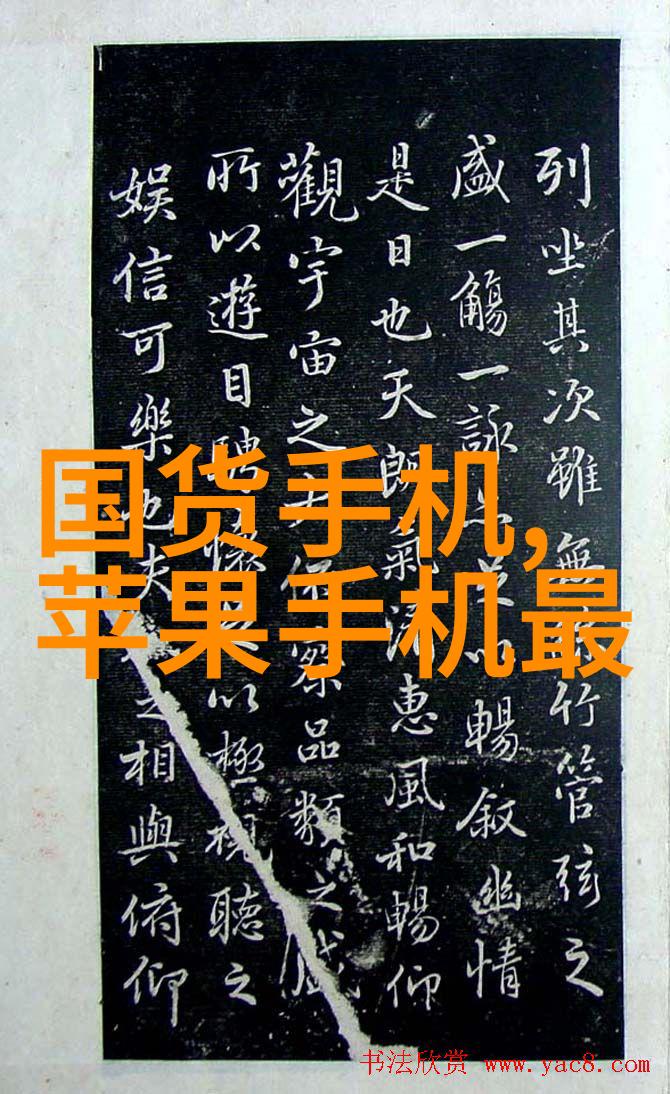 列坐其次雖無竹管弦之
盛一觴一詠暢叙幽情
是日也天朗氣惠風和暢仰
觀宇宙之察品類之盛
所以遊目騁懷以極視聽之
娱信可樂也夫之相與俯仰
国货手机,
苹果手机最
书法欣赏 www.yac8.com